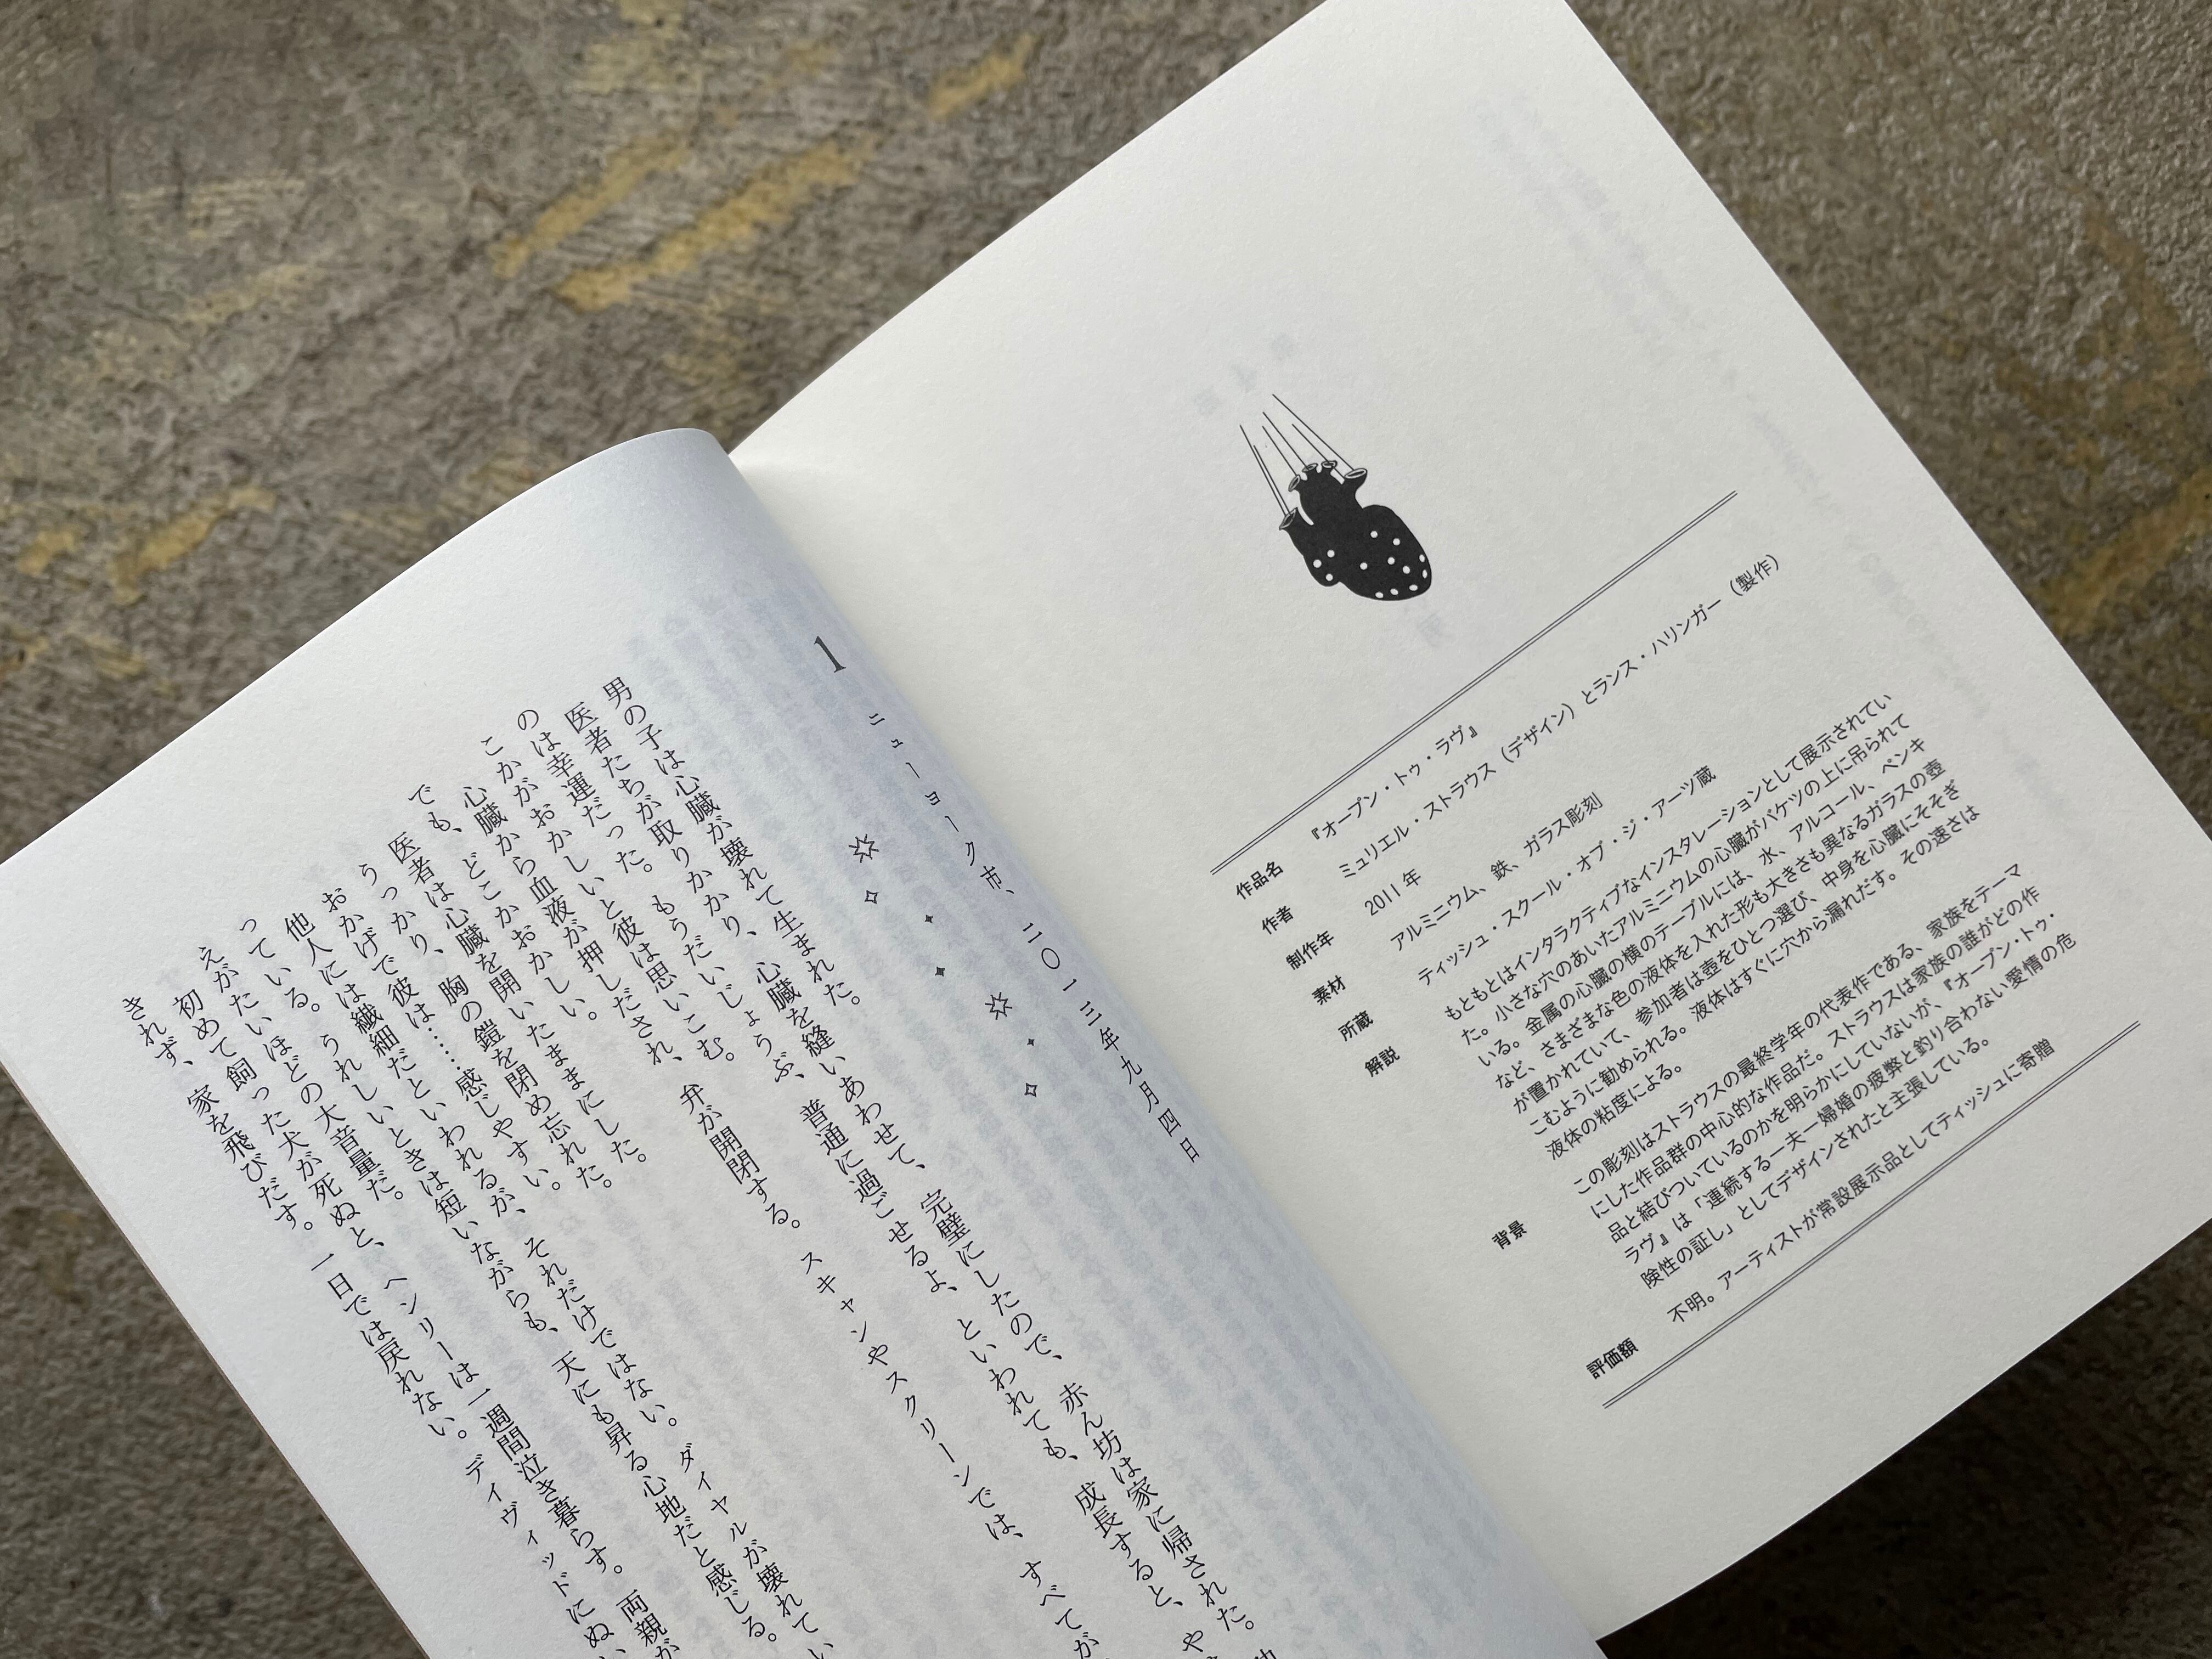 作品名 『オープン・トゥ・ラヴ』
作者 ミュリエル・ストラウス（デザイン）とランス・ハリンガー（製作）
制作年 2011年
素材 アルミニウム、鉄、ガラス彫刻
所蔵 ティッシュ・スクール・オブ・ジ・アーツ蔵
解説 もともとはインタラクティブなインスタレーションとして展示されてい
た。小さな穴のあいたアルミニウムの心臓がバケツの上に吊られて
いる。金属の心臓の横のテーブルには、水、アルコール、ペンキ
など、さまざまな色の液体を入れた形も大きさも異なるガラスの壺
が置かれていて、参加者は壺をひとつ選び、中身を心臓にそそぎ
こむように勧められる。液体はすぐに穴から漏れだす。その速さは
液体の粘度による。
背景 この彫刻はストラウスの最終学年の代表作である、家族をテーマ
にした作品群の中心的な作品だ。ストラウスは家族の誰がどの作
品と結びついているのかを明らかにしていないが、『オープン・トゥ・
ラヴ』は「連続する一夫一婦婚の疲弊と釣り合わない愛情の危
険性の証し」としてデザインされたと主張している。
評価額 不明。アーティストが常設展示品としてティッシュに寄贈
1
ニューヨーク市、二〇一三年九月四日
男の子は心臓が壊れて生まれた。
医者たちが取りかかり、心臓を縫いあわせて、完璧にしたので、赤ん坊は家に帰された。
のは幸運だった。もうだいじょうぶ、普通に過ごせるよ、といわれても、成長すると、や
こかがおかしいと彼は思いこむ。
心臓から血液が押しだされ、弁が開閉する。スキャンやスクリーンでは、すべてが
でも、どこかおかしい。
医者は心臓を開いたままにした。
うっかり、胸の鎧を閉め忘れた。
おかげで彼は……感じやすい。
他人には繊細だといわれるが、それだけではない。ダイヤルが壊れてい
っている。うれしいときは短いながらも、天にも昇る心地だと感じる。
えがたいほどの大音量だ。
初めて飼った犬が死ぬと、ヘンリーは一週間泣き暮らす。両親が
きれず、家を飛びだす。一日では戻れない。デイヴィッドにぬ